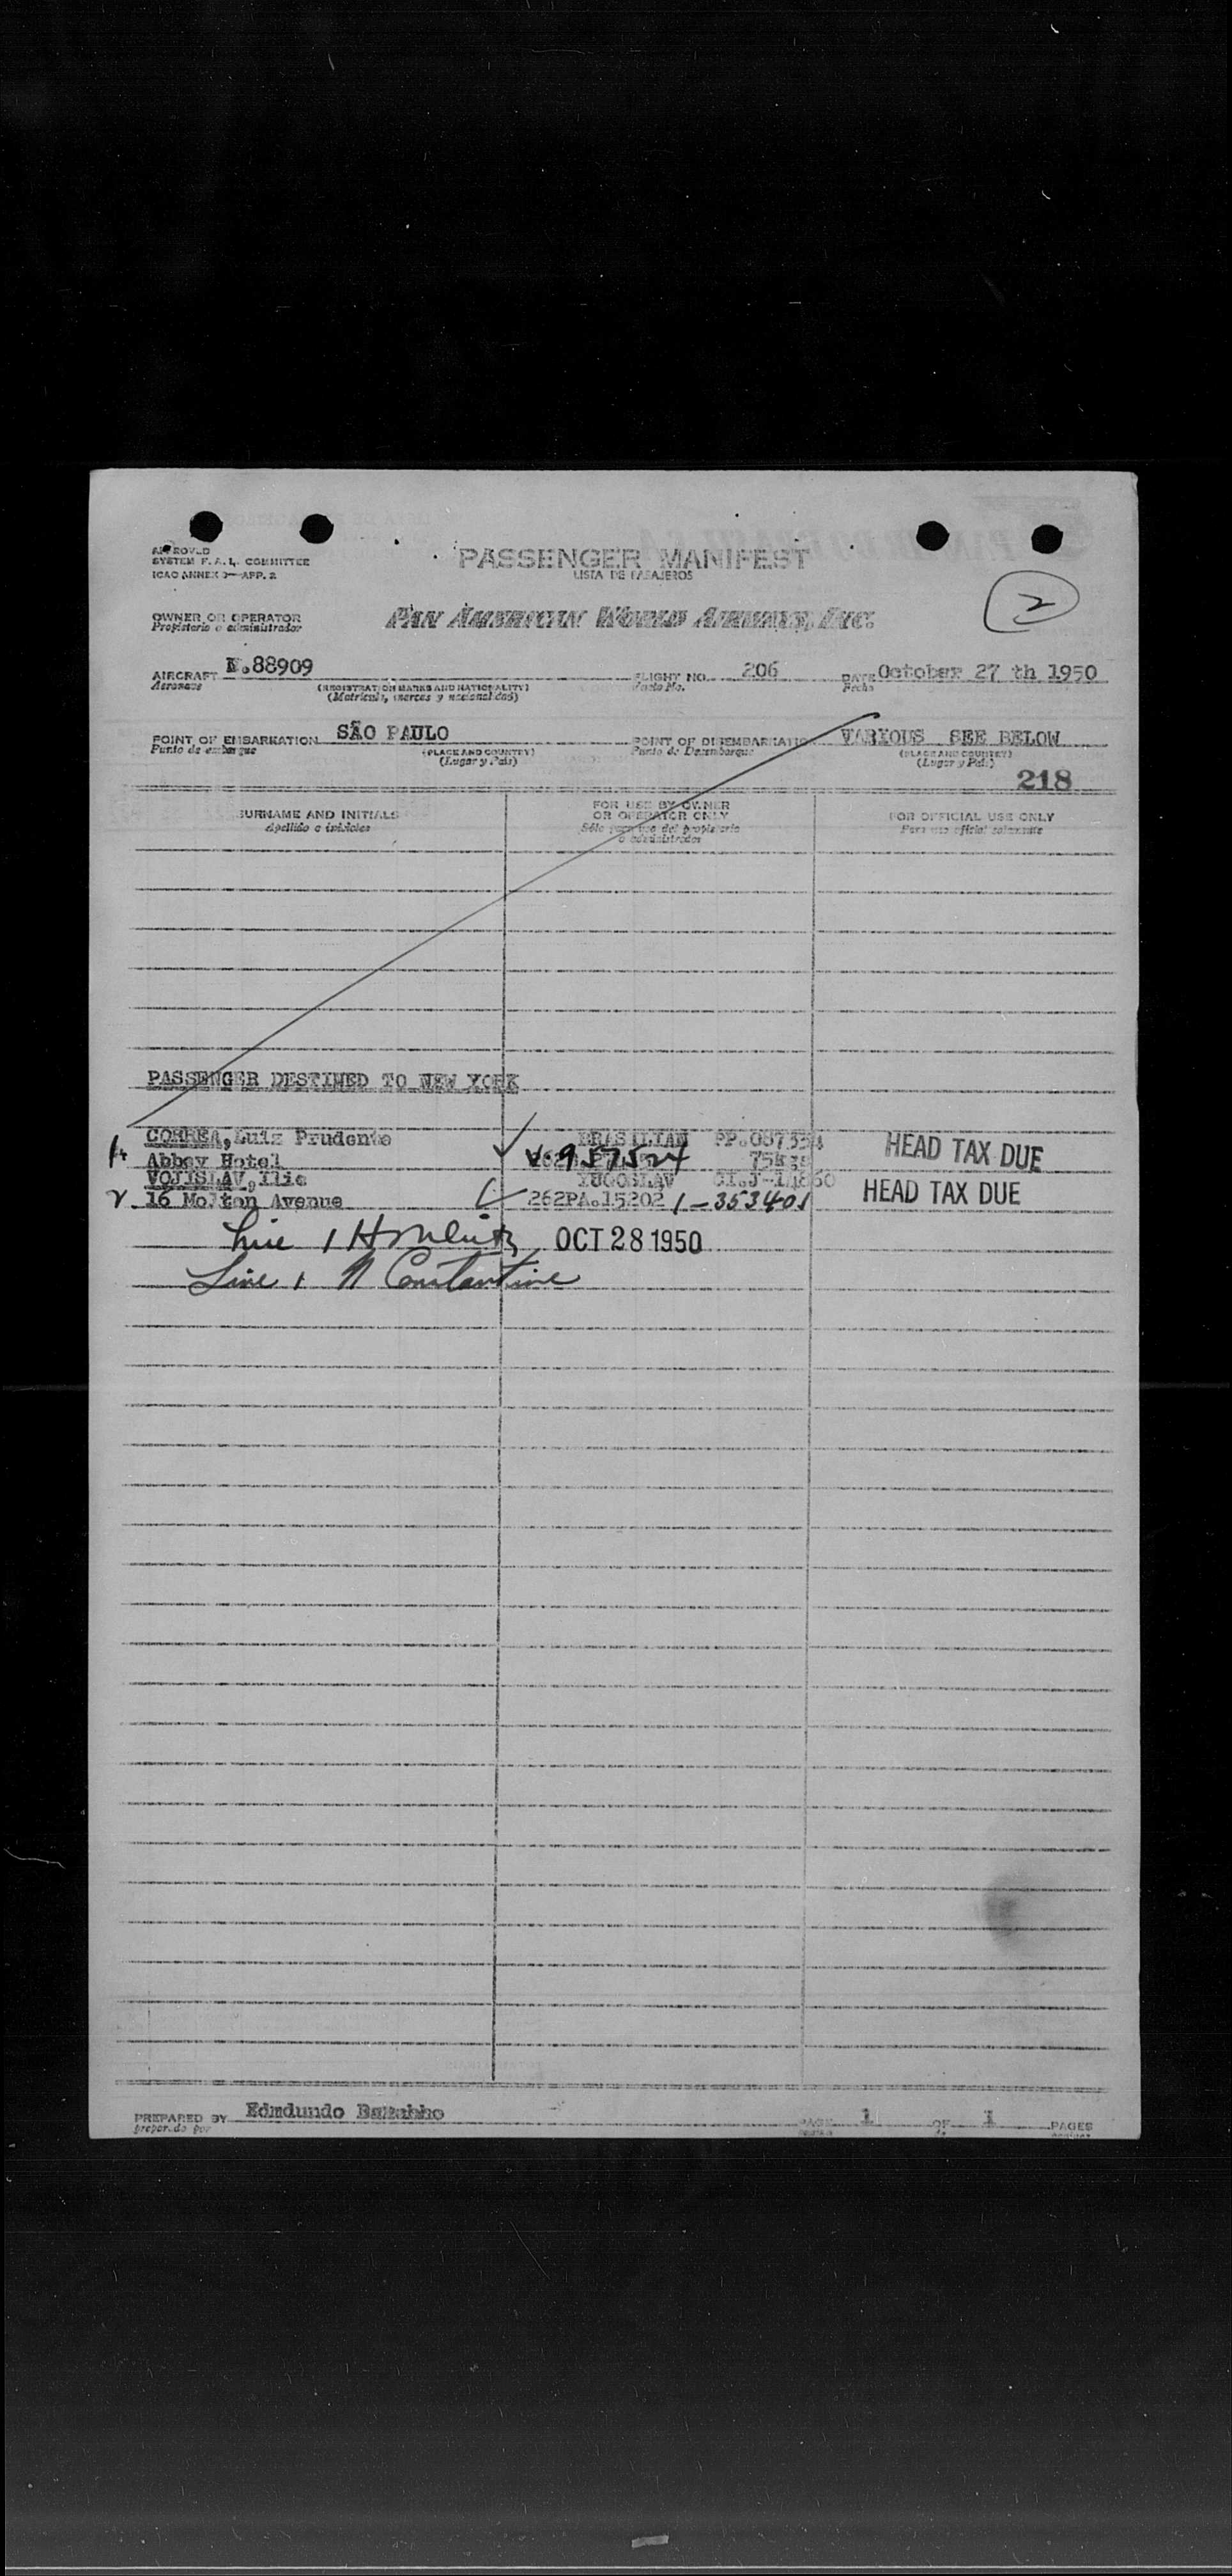 APPROVED
SYSTEM F. A. L. COMMITTEE
ICAO ANNEX 9—APP. 2
PASSENGER MANIFEST
LISTA DE PASAJEROS
2
OWNER OR OPERATOR
Propietario o administrador
PAN AMERICAN WORLD AIRWAYS, INC.
AIRCRAFT N.88909
Aeronave
(REGISTRATION MARKS AND NATIONALITY)
(Matrícula, marcas y nacionalidad)
FLIGHT NO. 206
Vuelo No.
DATE October 27 th 1950
Fecha
POINT OF EMBARKATION SÃO PAULO
Punto de embarque
(PLACE AND COUNTRY)
(Lugar y País)
POINT OF DISEMBARKATION VARIOUS SEE BELOW
Punto de Desembarque
(PLACE AND COUNTRY)
(Lugar y País)
218
SURNAME AND INITIALS
Apellido e iniciales
FOR USE BY OWNER
OR OPERATOR ONLY
Sólo para uso del propietario
o administrador
FOR OFFICIAL USE ONLY
Para uso oficial solamente
PASSENGER DESTINED TO NEW YORK
1 CORREA, Luiz Prudente BRASILIAN HEAD TAX DUE
Abbey Hotel V. 957524
VOJISLAV, Ilic YUGOSLAV HEAD TAX DUE
2 16 Molton Avenue 262PA.15202 1-353401
Line 1 OCT 28 1950
Line 1 N Constantine
PREPARED BY Edmdundo
preparado por
PAGE 1 OF 1 PAGES